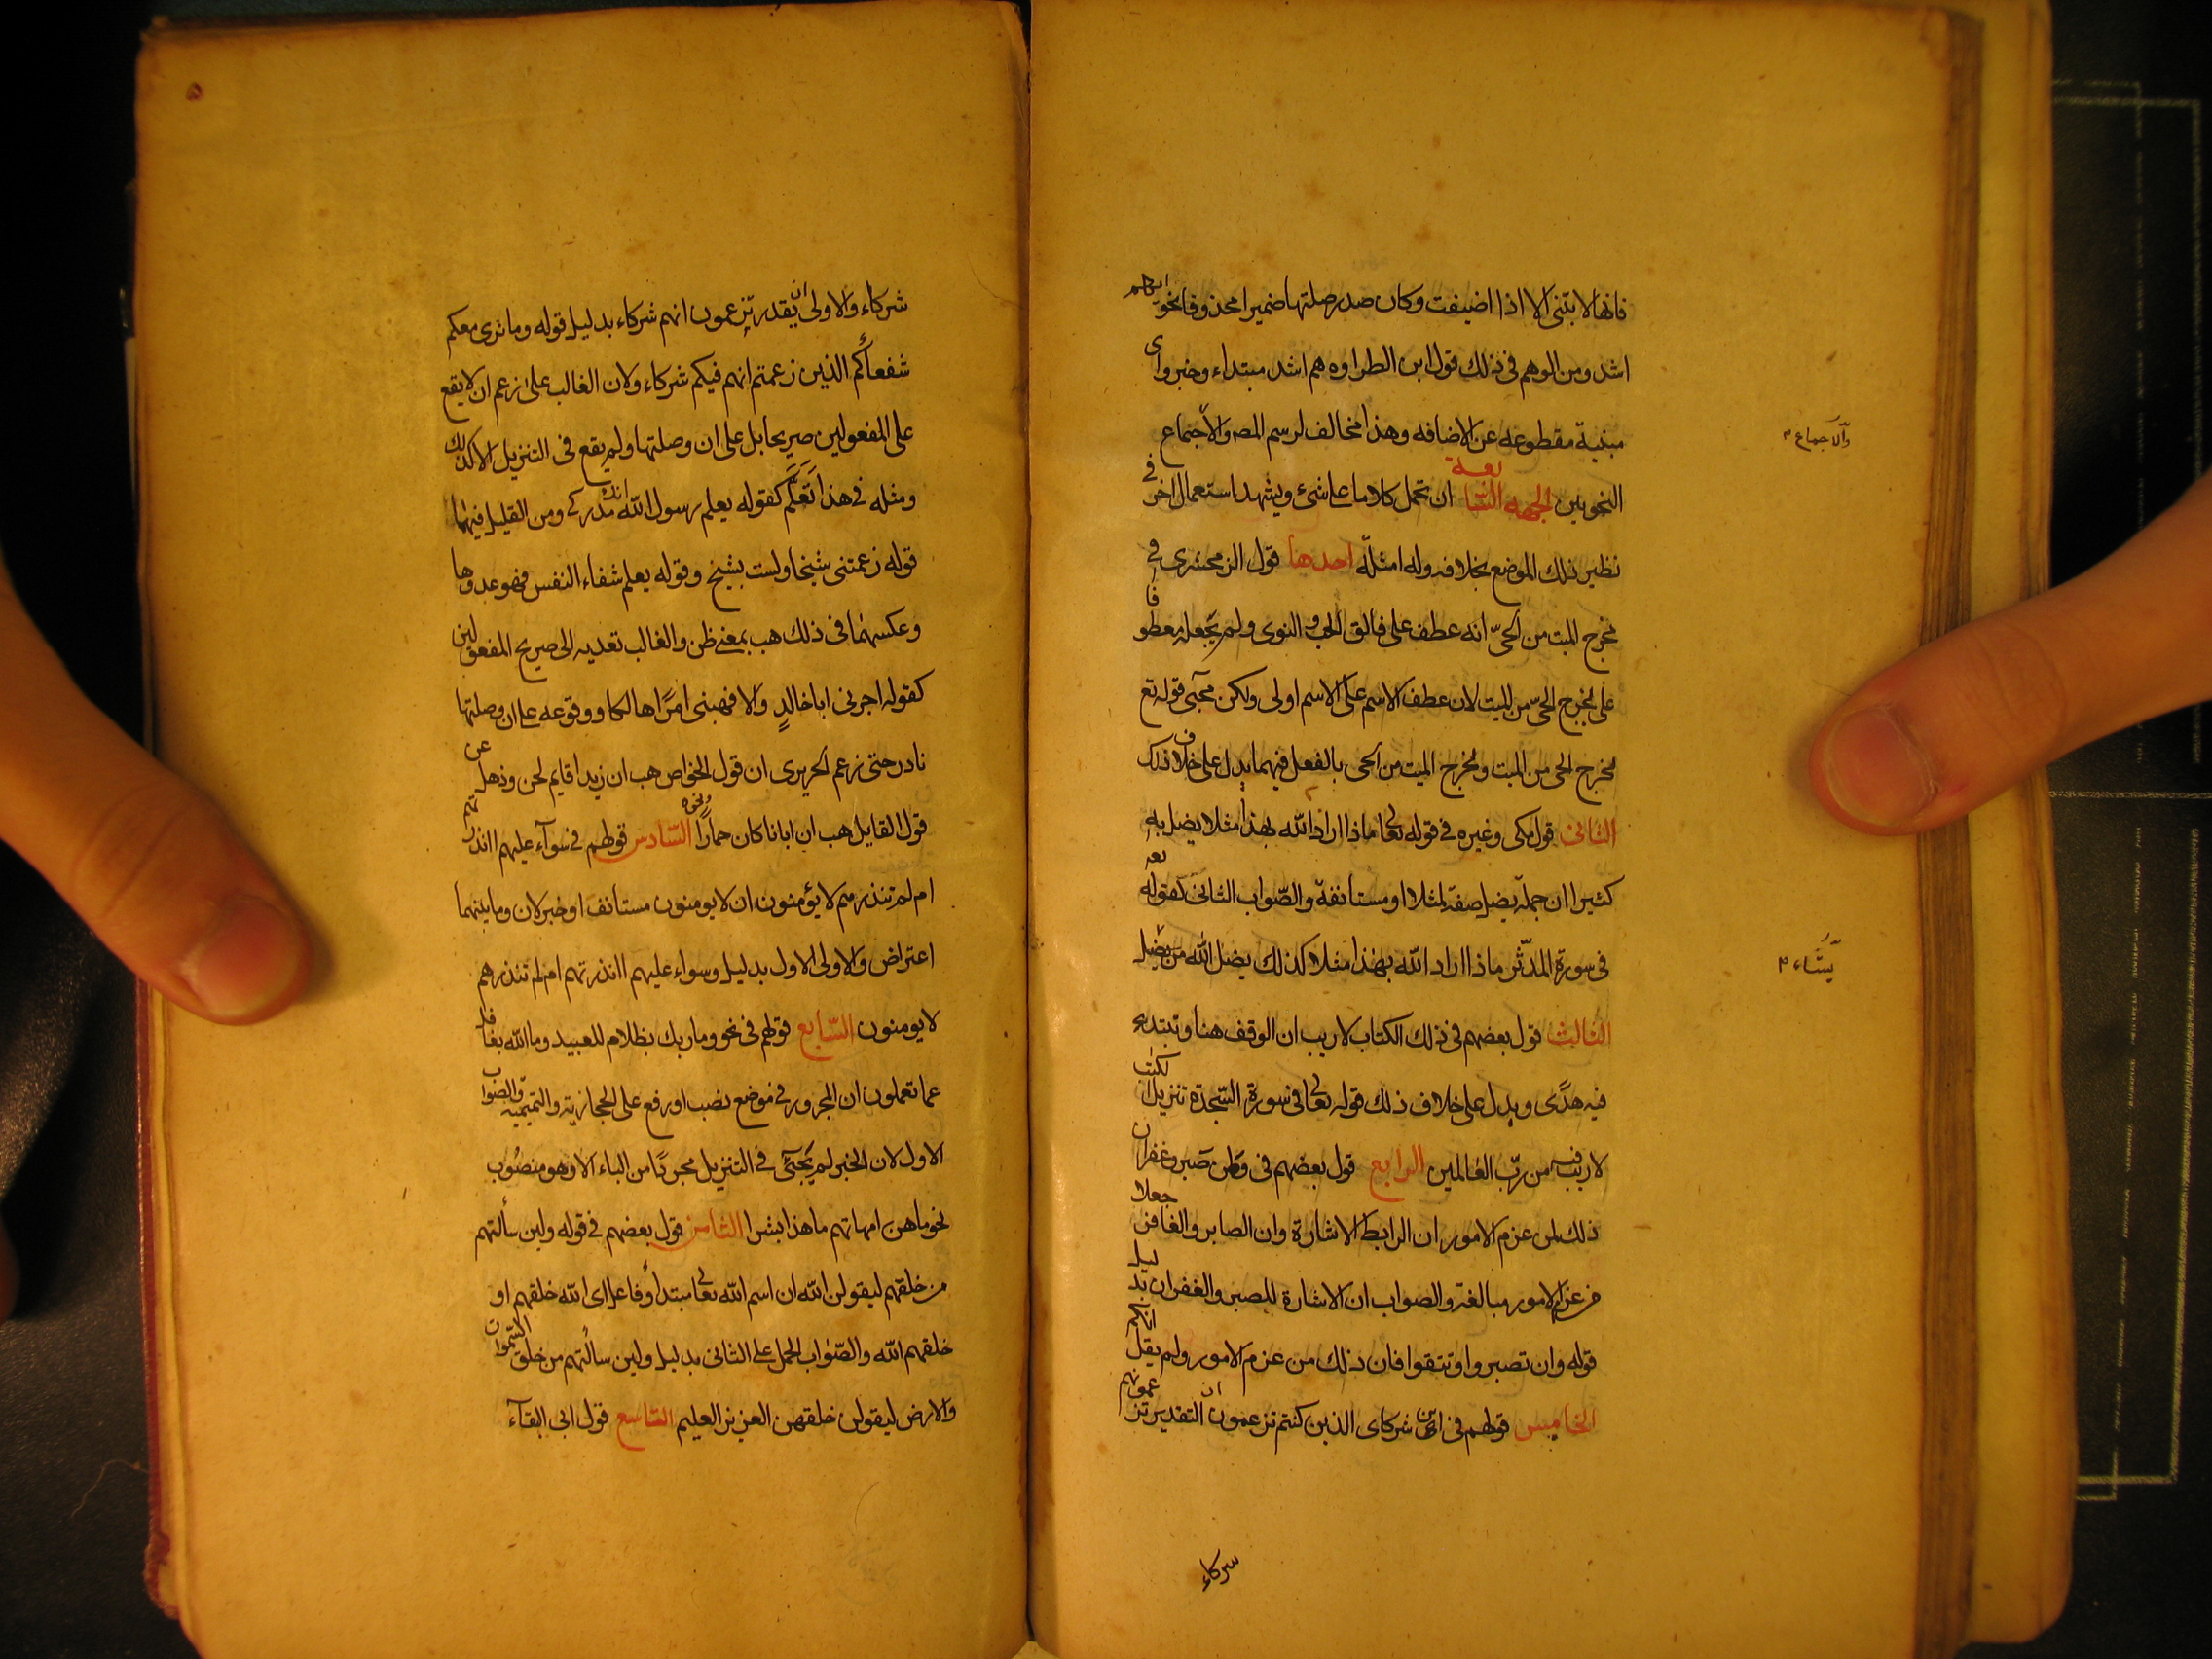 فانها لا تبنى الا اذا اضيفت وكان صدر صلتها ضميرا محذوفا نحو ايهم
اشد ومن الوهم فى ذلك قول ابن الطراوه هم اشد مبتداء وخبر واى
مبنية مقطوعه عن الاضافه وهذا مخالف لرسم المصـ والاجماع
والاجماع
النحويين الجهه السّابعة ان تحمل كلاما على شئ ويشهد استعمال اخر فى
نظير ذلك الموضع بخلافه وله امثلة احدها قول الزمخشرى فى
مخرج الميت من الحىّ انه عطف على فالق الحب والنوى ولم يجعله معطوفا
على يخرج الحىّ من الميت لان عطف الاسم على الاسم اولى ولكن مجىء قوله تع
يخرج الحى من الميت ويخرج الميت من الحى بالفعل فيهما يدل على خلاف ذلك
الثانى قول مكى وغيره فى قوله تعالى ماذا اراد الله بهذا مثلا يضل به
كثيرا ان جملة يضل صفة لمثلا او مستانفة والصّواب الثانى كقوله تعـ
فى سورة المدّثر ماذا اراد الله بهذا مثلا كذلك يضل الله من يضل
يَّشَاء
الثالث قول بعضهم فى ذلك الكتاب لاريب ان الوقف هنا وتبتدى
فيه هدًى ويدل على خلاف ذلك قوله تعالى فى سورة السّجدة تنزيل الكتب
لاريب فيه من ربّ العالمين الرابع قول بعضهم فى ولمن صبر وغفر ان
ذلك لمن عزم الامور ان الرابط الاشارة وان الصابر والغافر جعلا
من عزم الامور مبالغة والصواب ان الاشارة للصبر والغفران بدليل
قوله وان تصبروا وتتقوا فان ذلك من عزم الامور ولم يقل انكم
الخامس قولهم فى اين شركاى الذين كنتم تزعمون ان التقدير تزعمونهم
شركاء
شركاء والاولى ان يقدر تزعمون انهم شركاء بدليل قوله وما نرى معكم
شفعاءكم الذين زعمتم انهم فيكم شركاء ولان الغالب على زعم ان لا يقع
على المفعولين صريحا بل على ان وصلتها ولم يقع فى التنزيل الا كذلك
ومثله فى هذا تَعَلَّم كقوله تعلم رسول الله انك مدركى ومن القليل فيهما
قوله زعمتنى شيخا ولست بشيخ وقوله تعلم شفاء النفس قهر عدوها
وعكسهما فى ذلك هب بمعنى ظن والغالب تعديه الى صريح المفعولين
كقوله اجرنى ابا خالدٍ والا فهبنى امرًا هالكا ووقوعه على ان وصلتها
نادر حتى زعم الحريرى ان قول الخواص هب ان زيدا قايم لحن وذهل عن
قول القايل هب ان ابانا كان حمارًا ونحوه السّادس قولهم فى سوآء عليهم اانذرتهم
ام لم تنذرهم لا يؤمنون ان لا يومنون مستانف او خبر لان وما بينهما
اعتراض والاولى الاول بدليل وسواء عليهم اانذرتهم ام لم تنذرهم
لا يومنون السّابع قولهم فى نحو وما ربك بظلام للعبيد وما الله بغافل
عما تعملون ان المجرور فى موضع نصب او رفع على الحجازية والتميمية والصّواب
الاول لان الخبر لم يجىء فى التنزيل مجردًا من الباء الا وهو منصوب
نحو ماهن امهاتهم ما هذا بشرا الثامن قول بعضهم فى قوله ولين سألتهم
من خلقهم ليقولن الله ان اسم الله تعالى مبتدأ او فاعل اى الله خلقهم او
خلقهم الله والصّواب الحمل على الثانى بدليل ولين سالتهم من خلق السّموات
والارض ليقولن خلقهن العزيز العليم التاسع قول ابى البقآء